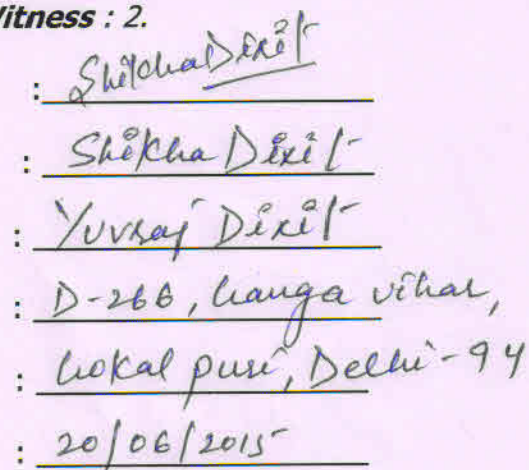 Witness : 2.
: Shikha Dixit
: Shikha Dixit
: Yuvraj Dixit
: D-266, Ganga vihar,
: Gokal puri, Delhi-94
: 20/06/2015